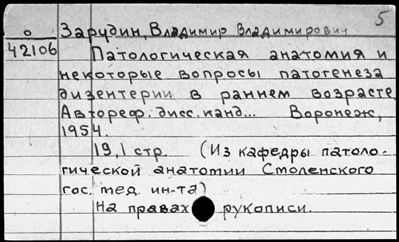 5
о Зарудин, Владимир Владимирович
42106 Патологическая анатомия и
некоторые вопросы патогенеза
дизентерии в раннем возрасте
Автореф. дисс. канд... Воронеж,
1954.
19,1 стр. (Из кафедры патоло-
гической анатомии Смоленского
гос. мед. ин-та)
На правах рукописи.